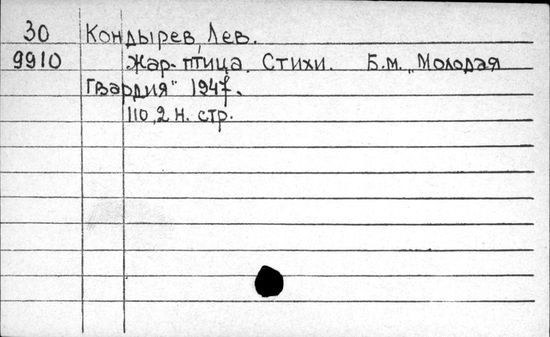 30 Кондырев, Лев.
9910 Жар-птица. Стихи. Б.м. „Молодая
Гвардия" 1947.
110,2 н. стр.